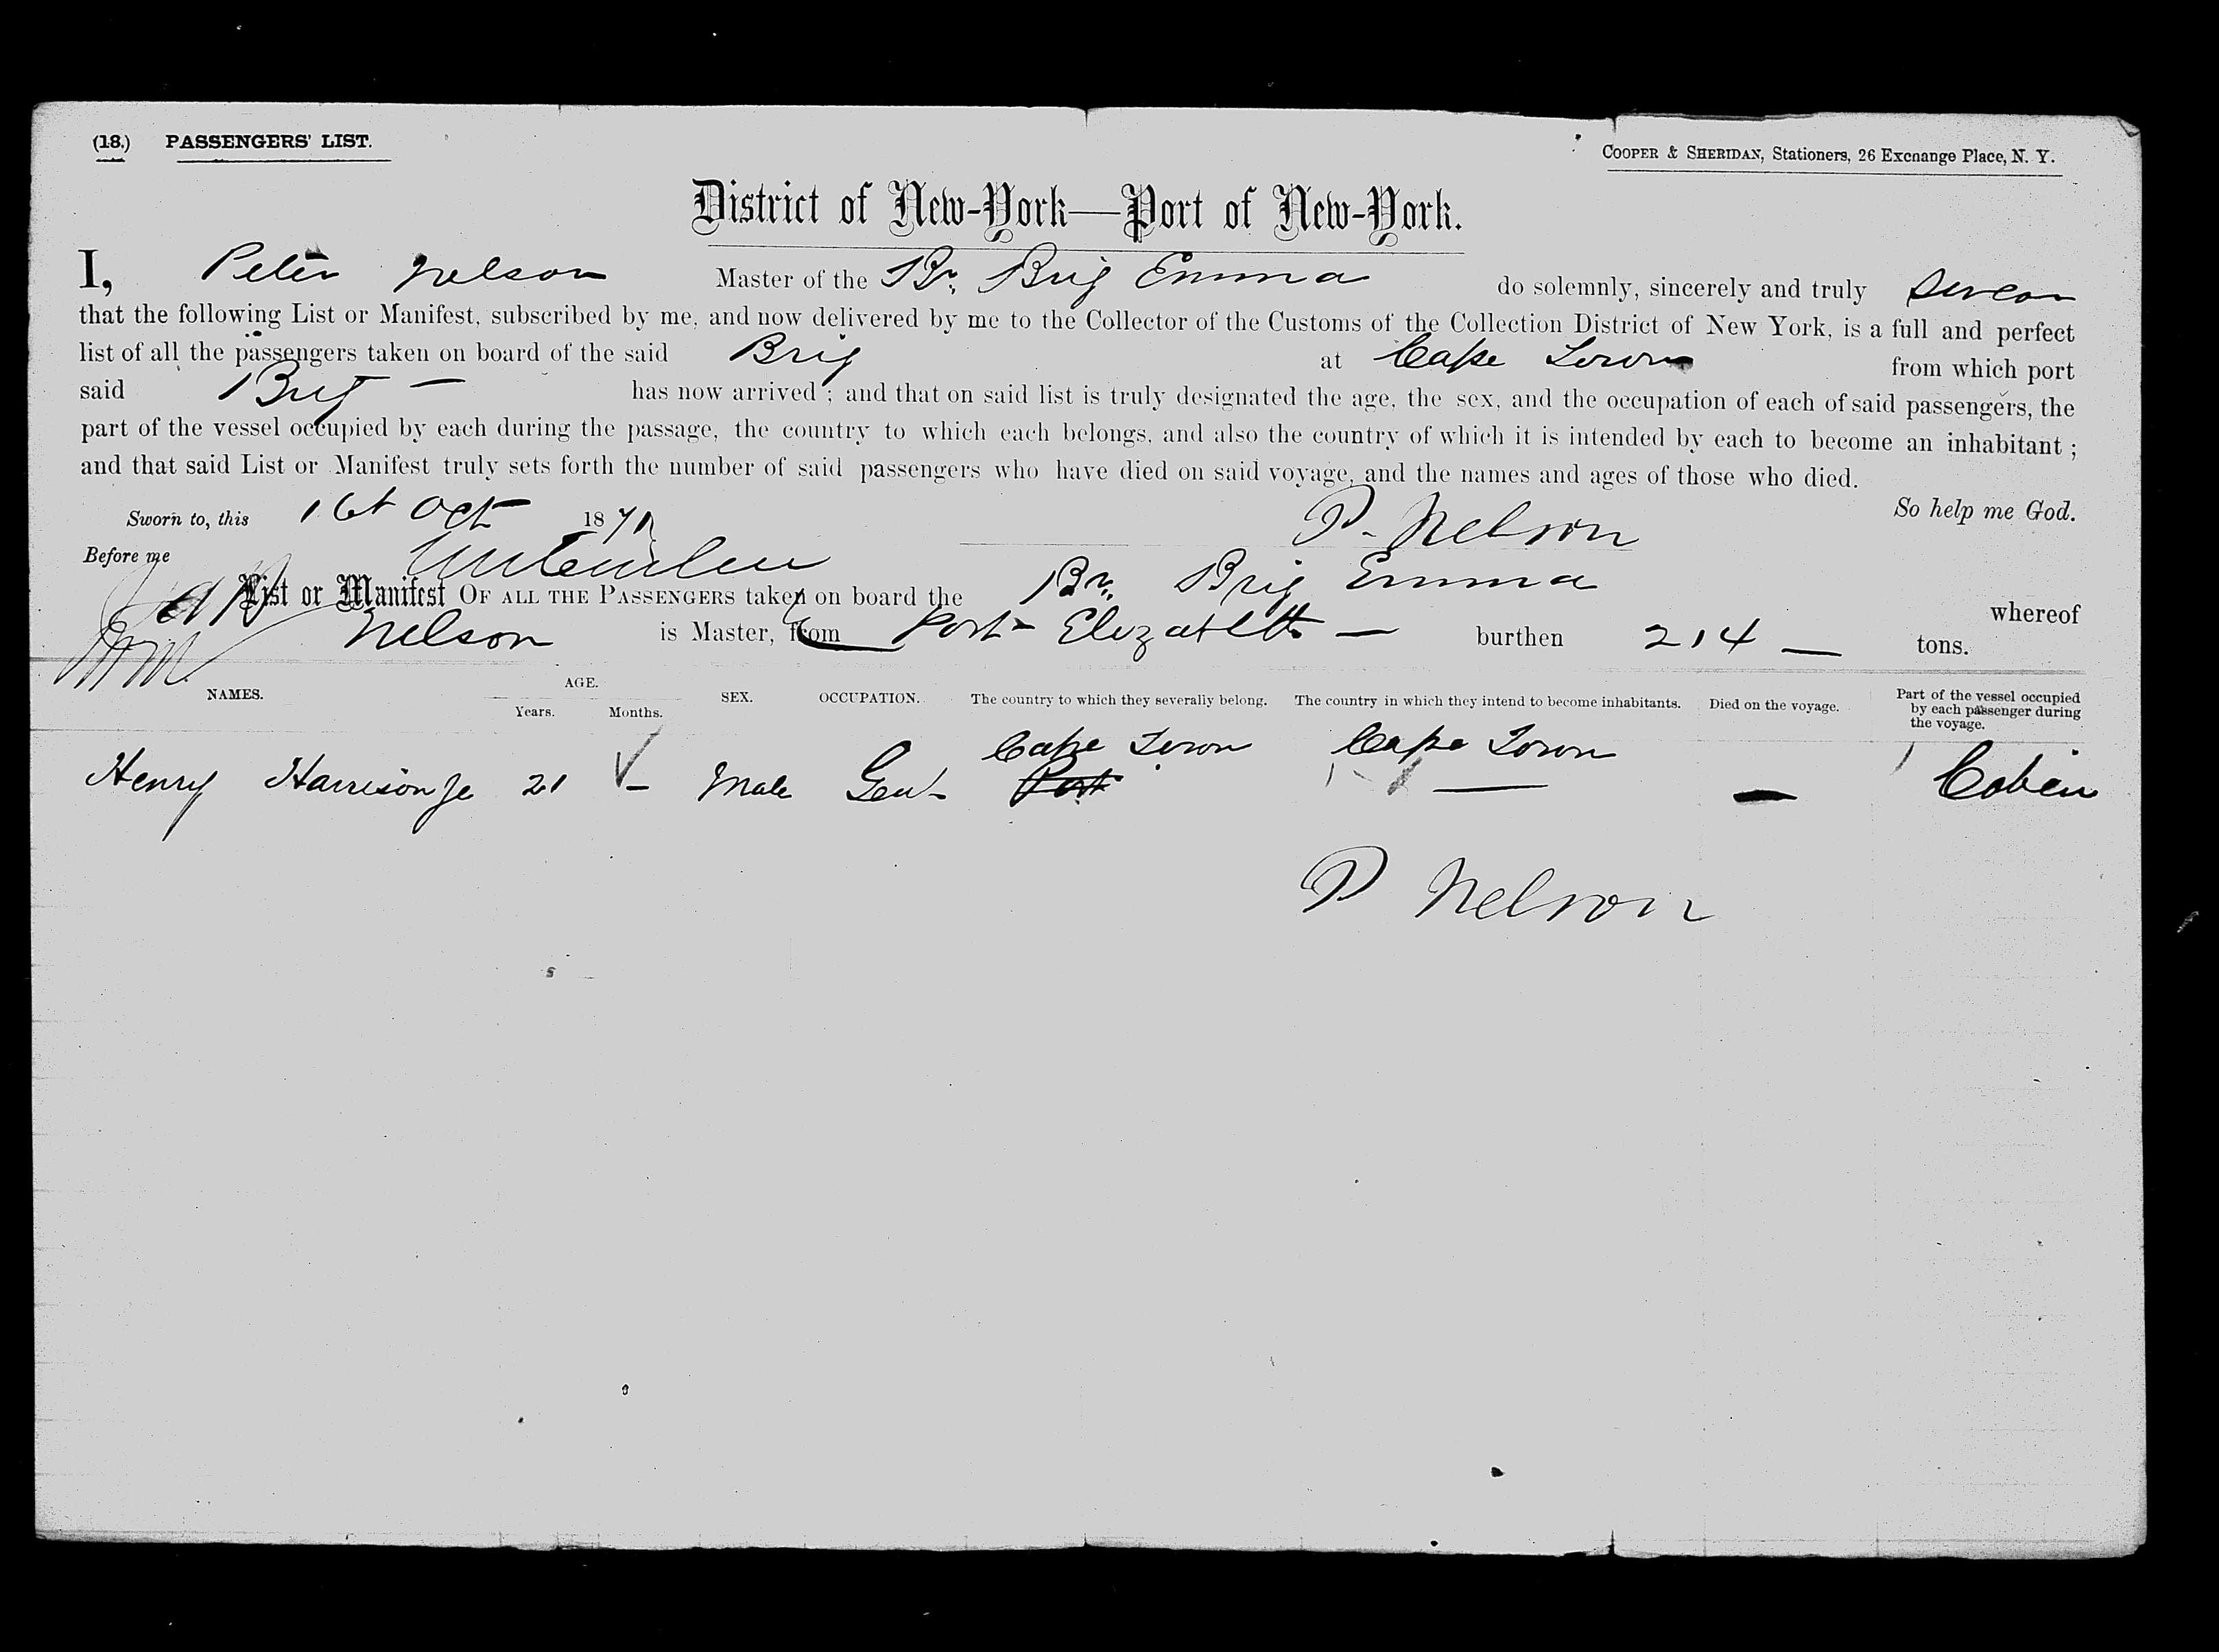 (18.) PASSENGERS' LIST.
COOPER & SHERIDAN, Stationers, 26 Exchange Place, N. Y.
District of New-York—Port of New-York.
I, Peter Nelson Master of the Br. Brig Emma do solemnly, sincerely and truly swear
that the following List or Manifest, subscribed by me, and now delivered by me to the Collector of the Customs of the Collection District of New York, is a full and perfect
list of all the passengers taken on board of the said Brig at Cape Town from which port
said Brig — has now arrived ; and that on said list is truly designated the age, the sex, and the occupation of each of said passengers, the
part of the vessel occupied by each during the passage, the country to which each belongs, and also the country of which it is intended by each to become an inhabitant ;
and that said List or Manifest truly sets forth the number of said passengers who have died on said voyage, and the names and ages of those who died.
So help me God.
Sworn to, this Oct 1871
P. Nelson
Before me
List or Manifest OF ALL THE PASSENGERS taken on board the Br. Brig Emma whereof
Nelson is Master, from Port Elizabeth — burthen 214 — tons.
NAMES. AGE. Years. Months. SEX. OCCUPATION. The country to which they severally belong. The country in which they intend to become inhabitants. Died on the voyage. Part of the vessel occupied by each passenger during the voyage.
Henry Harrison Jr 21 – Male Gent Cape Town Port Cape Town — — Cabin
P Nelson